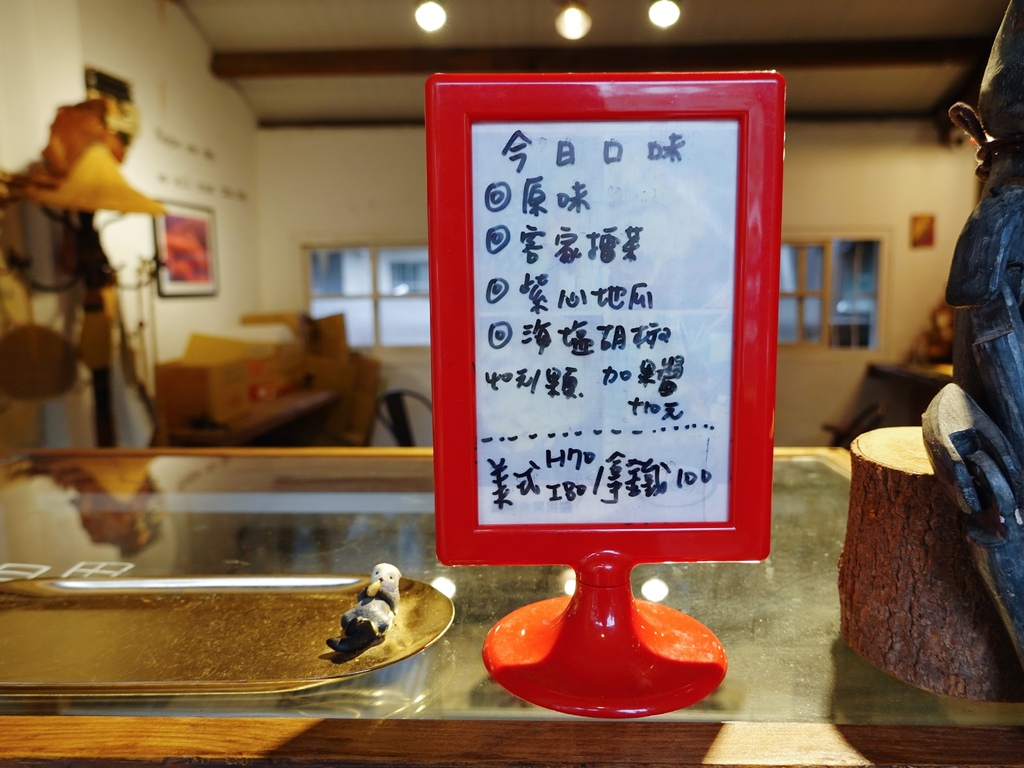 今日口味
◎原味
◎客家擂茶
◎紫心地瓜
◎海塩胡椒
40元/顆 加果醬
+10元
美式 H70 I80 /拿鐵100